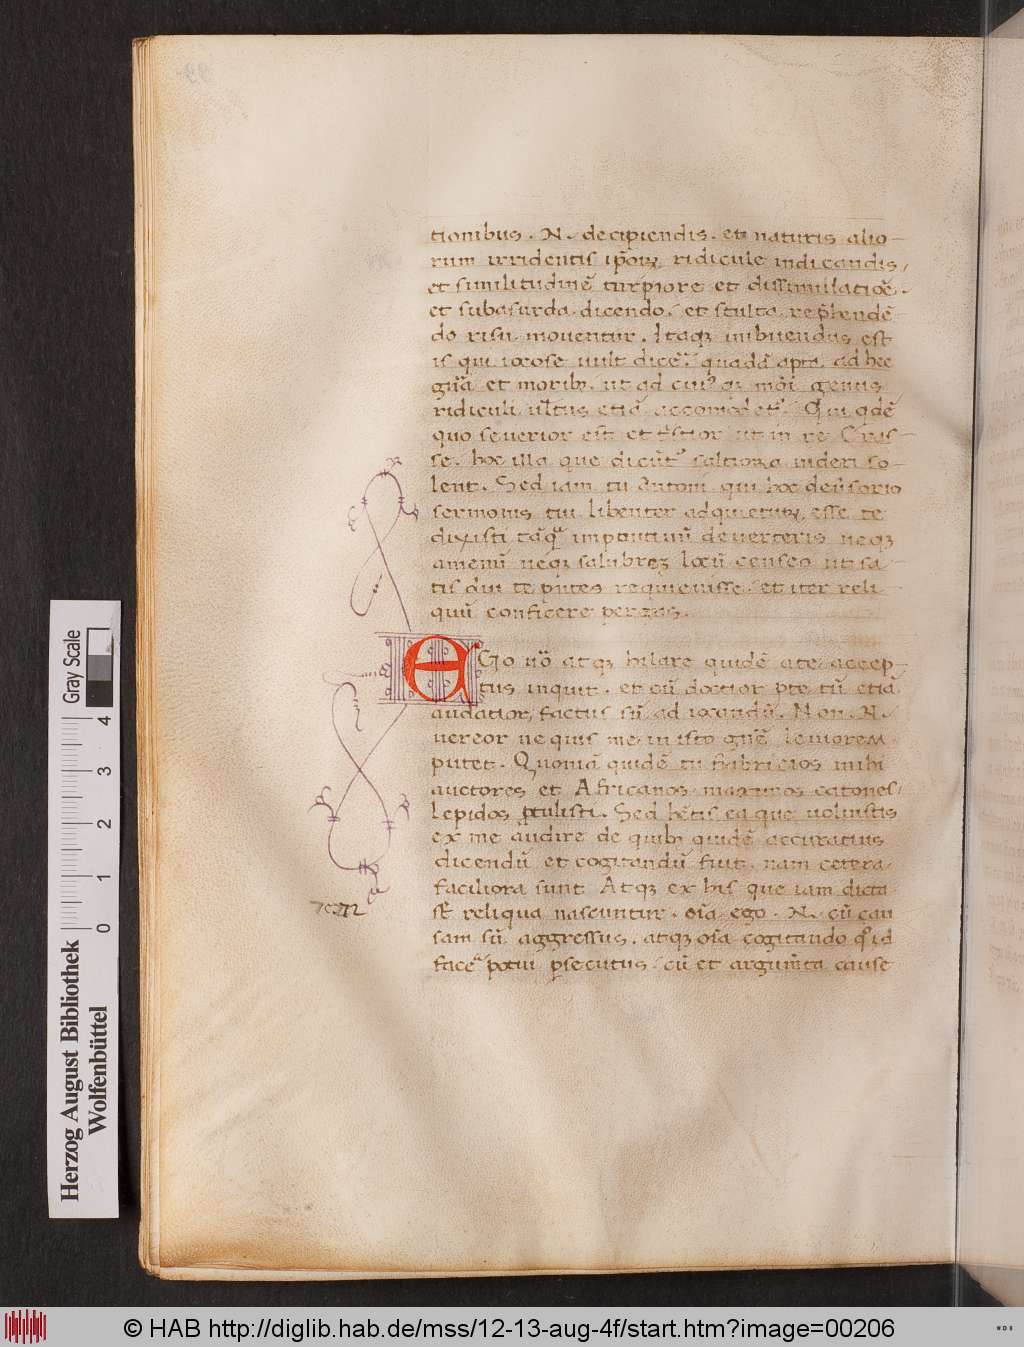 tionibus . N . decipiendis . et naturis alio-
rum irridentis ip̄oꝝ ridicule indicandis,
et similitudinē turpiore et dissimulatiōe .
et subasurda dicendo . et stulta rep̄hendē-
do risu mouentur . Itaqꝫ imbuendus est
is qui iocose uult dicē quadā apta ad hec
gn̄a et moribꝫ . ut ad cuiꝰqꝫ mōi genus
ridiculi ul̄tus etiā accomodet . Qui qdē
quo seuerior est et tristior ut in re Cras-
se . hoc illa que dicūtꝰ saltiora uideri so-
lent . Sed iam tu Antoni qui hoc deūsorio
sermonis tui libenter adquieturꝝ esse te
dixisti tāqꝫ imponptinū deuerteris neqꝫ
amenū neqꝫ salubreꝫ locū censeo ut sa-
tis diu te putes requieuisse . et iter reli-
quū conficere pergas .
EGo uō atqꝫ hilare quidē a te accep-
tus inquit . et cū doctior p te tū etiā
audatior, factus sū ad iocandū . Non . N .
uereor ne quis me in isto gn̄e leuiorem
putet . Quoniā quidē tu fabricios mihi
auctores et Africanos maximos catones,
lepidos ꝓtulisti . Sed hētis ea que uoluistis
ex me audire de quibꝫ quidē accuratius
dicendū et cogitandū fuit . nam cetera
faciliora sunt Atqꝫ ex his que iam dicta
st̄ reliqua nascuntur . oīa ego . N . cū cau
sam sū aggressus . atqꝫ oīa cogitando qd
facē potui ꝑsecutus . cū et argum̄ta cause
Herzog August Bibliothek
Wolfenbüttel
0 1 2 3 4
Gray Scale
© HAB http://diglib.hab.de/mss/12-13-aug-4f/start.htm?image=00206